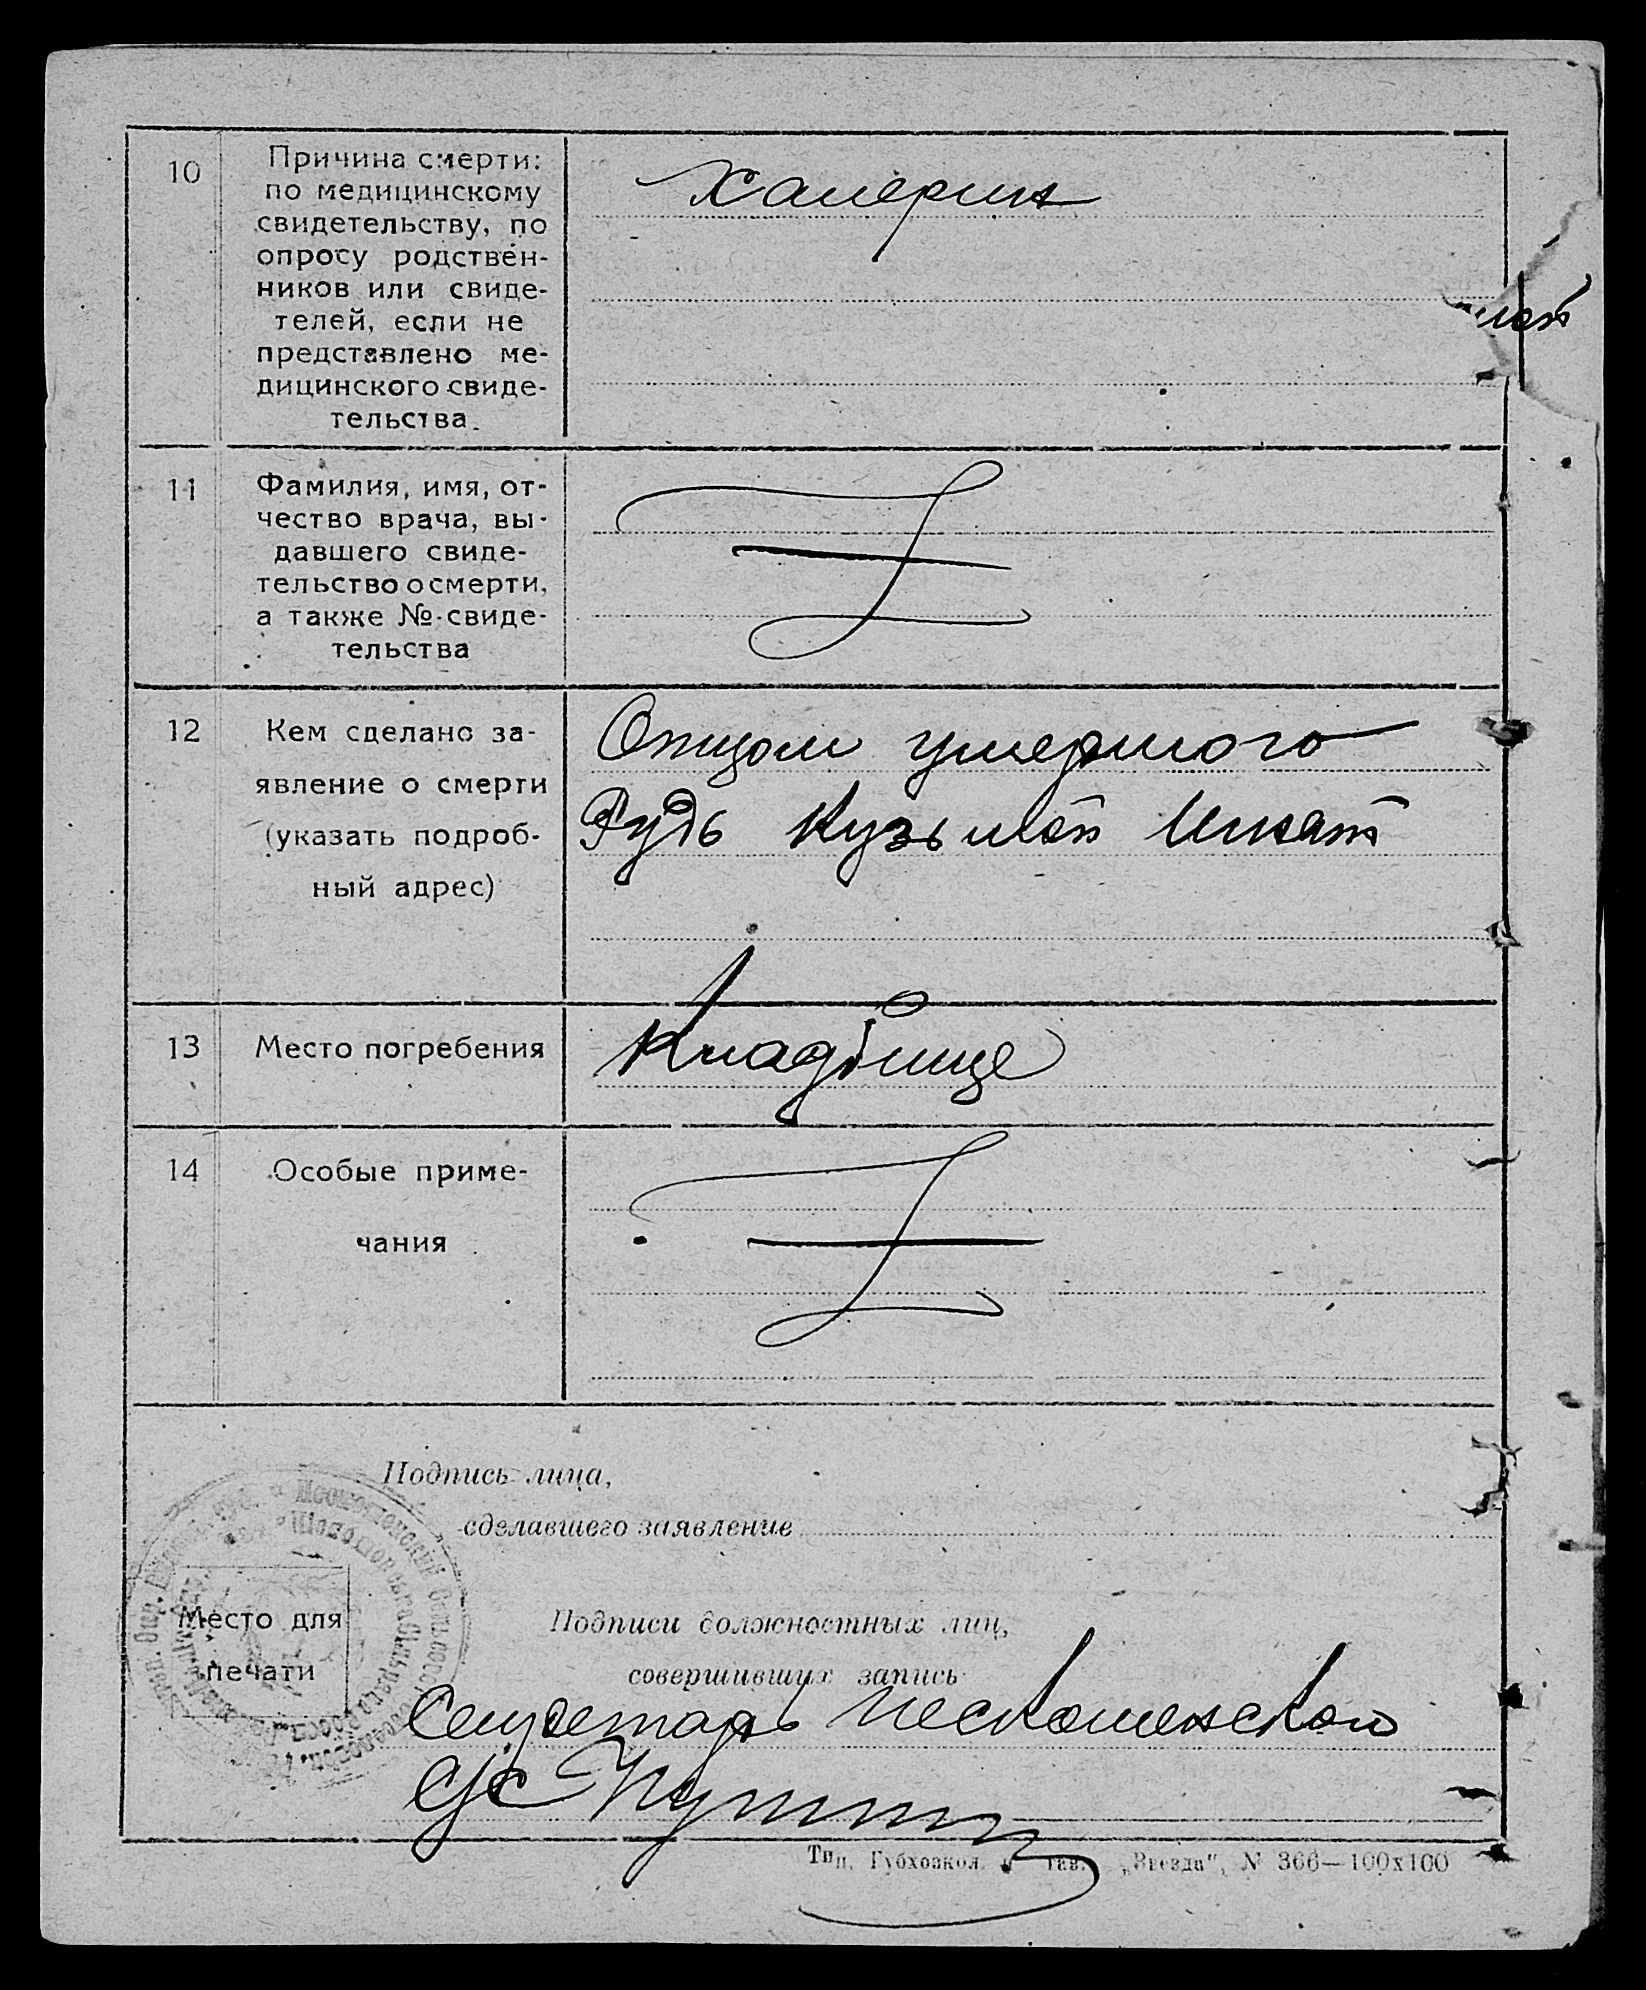 10
Причина смерти:
по медицинскому
свидетельству, по
опросу родствен-
ников или свиде-
телей, если не
представлено ме-
дицинского свиде-
тельства.
Халерия
11
Фамилия, имя, от-
чество врача, вы-
давшего свиде-
тельство о смерти,
а также № свиде-
тельства
12
Кем сделано за-
явление о смерти
(указать подроб-
ный адрес)
Отцом умершого
Рудь Кузьмой
13
Место погребения
Кладбище
14
Особые приме-
чания
Подпись лица,
сделавшего заявление
Место для
печати
Подписи должностных лиц,
совершивших запись
Секретарь Песко
С/С
Тип. Губхозкол. Полтав. „Звезда“, N 366—100х100